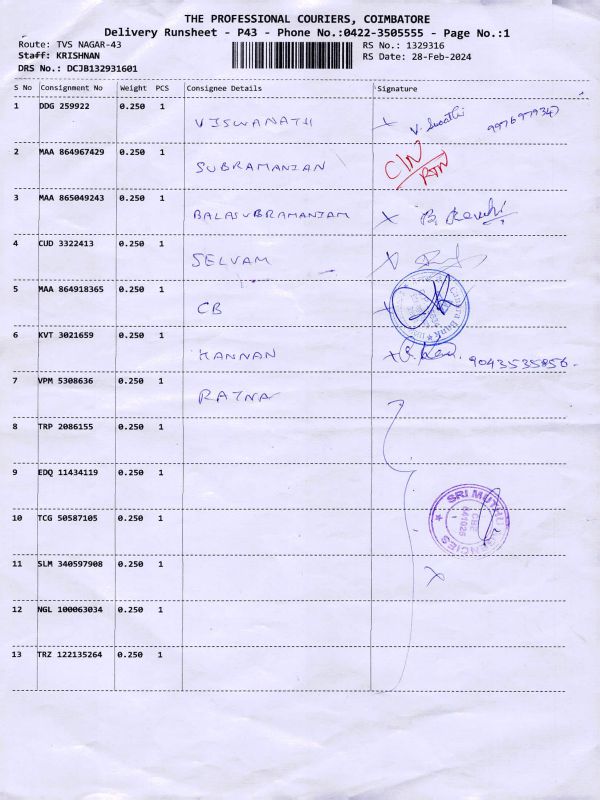 THE PROFESSIONAL COURIERS, COIMBATORE
Delivery Runsheet - P43 - Phone No.:0422-3505555 - Page No.:1
Route: TVS NAGAR-43 RS No.: 1329316
Staff: KRISHNAN RS Date: 28-Feb-2024
DRS No.: DCJB132931601
S No Consignment No Weight PCS Consignee Details Signature
1 DDG 259922 0.250 1 VISWANATH V. 9976979347
2 MAA 864967429 0.250 1 SUBRAMANIAN C/N RTN
3 MAA 865049243 0.250 1 BALASUBRAMANIAM B.
4 CUD 3322413 0.250 1 SELVAM
5 MAA 864918365 0.250 1 CB Canara Bank
6 KVT 3021659 0.250 1 KANNAN 9043535856
7 VPM 5308636 0.250 1 RATNA
8 TRP 2086155 0.250 1
9 EDQ 11434119 0.250 1
SRI MUTHU AGENCIES
CBE
641025
10 TCG 50587105 0.250 1
11 SLM 340597908 0.250 1
12 NGL 100063034 0.250 1
13 TRZ 122135264 0.250 1